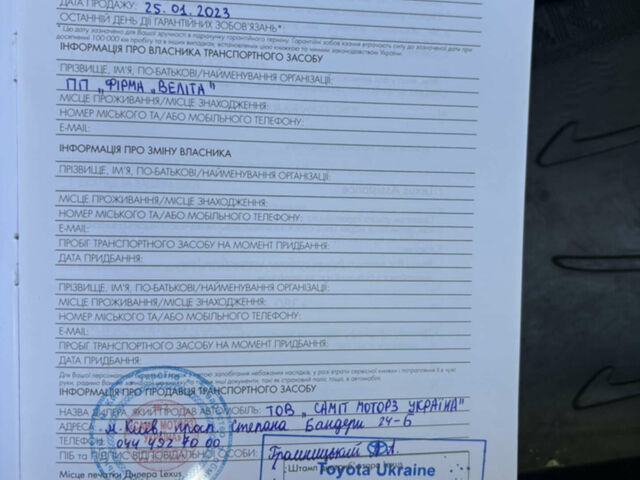 ДАТА ПРОДАЖУ: 25.01.2023
ОСТАННІЙ ДЕНЬ ДІЇ ГАРАНТІЙНИХ ЗОБОВ'ЯЗАНЬ*:
* Цю дату зазначено для Вашої зручності в підрахунку гарантійного терміну. Гарантійні зобов'язання втрачають силу до зазначеної дати при
досягненні 100 000 км пробігу та в інших випадках, встановлених цією книжкою та чинним законодавством України.
ІНФОРМАЦІЯ ПРО ВЛАСНИКА ТРАНСПОРТНОГО ЗАСОБУ
ПРІЗВИЩЕ, ІМ'Я, ПО-БАТЬКОВІ/НАЙМЕНУВАННЯ ОРГАНІЗАЦІЇ:
ПП „ФІРМА „ВЕЛІТА"
МІСЦЕ ПРОЖИВАННЯ/МІСЦЕ ЗНАХОДЖЕННЯ:
НОМЕР МІСЬКОГО ТА/АБО МОБІЛЬНОГО ТЕЛЕФОНУ:
E-MAIL:
ІНФОРМАЦІЯ ПРО ЗМІНУ ВЛАСНИКА
ПРІЗВИЩЕ, ІМ'Я, ПО-БАТЬКОВІ/НАЙМЕНУВАННЯ ОРГАНІЗАЦІЇ:
МІСЦЕ ПРОЖИВАННЯ/МІСЦЕ ЗНАХОДЖЕННЯ:
НОМЕР МІСЬКОГО ТА/АБО МОБІЛЬНОГО ТЕЛЕФОНУ:
E-MAIL:
ПРОБІГ ТРАНСПОРТНОГО ЗАСОБУ НА МОМЕНТ ПРИДБАННЯ:
ДАТА ПРИДБАННЯ:
ПРІЗВИЩЕ, ІМ'Я, ПО-БАТЬКОВІ/НАЙМЕНУВАННЯ ОРГАНІЗАЦІЇ:
МІСЦЕ ПРОЖИВАННЯ/МІСЦЕ ЗНАХОДЖЕННЯ:
НОМЕР МІСЬКОГО ТА/АБО МОБІЛЬНОГО ТЕЛЕФОНУ:
E-MAIL:
ПРОБІГ ТРАНСПОРТНОГО ЗАСОБУ НА МОМЕНТ ПРИДБАННЯ:
ДАТА ПРИДБАННЯ:
Для Вашої персональної запобігання небажаних наслідків, у разі втрати сервісної книжки і потрапляння її в чужі
руки, радимо Вам такі інші документи, такі як страховий поліс, тощо, в автомобілі.
ІНФОРМАЦІЯ ПРО ПРОДАВЦЯ ТРАНСПОРТНОГО ЗАСОБУ
НАЗВА ДИЛЕРА, ЯКИЙ ПРОДАВ АВТОМОБІЛЬ: ТОВ „САМІТ МОТОРЗ УКРАЇНА"
АДРЕСА: м. Київ, просп. Степана Бандери 24-Б
ТЕЛЕФОН: 044 492 70 00
ПІБ ТА ПІДПИС ВІДПОВІДАЛЬНОЇ ОСОБИ:
Штамп Дилера Lexus
Toyota Ukraine
Місце печатки Дилера Lexus